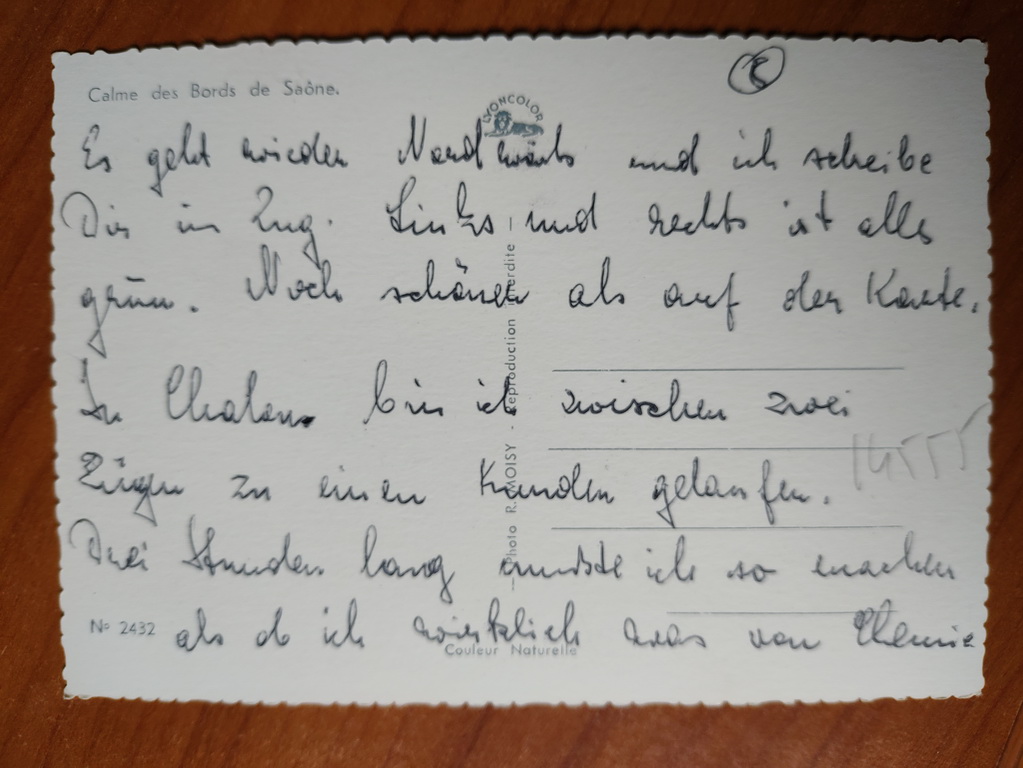 Calme des Bords de Saône.
LYONCOLOR
Es geht wieder Nordwärts und ich scheibe
Dir im Zug. Links und rechts ist alles
grün. Noch schöner als auf der Karte.
In Chalons bin ich zwischen zwei
Zügen zu einen Kunden gelaufen.
Drei Stunden lang musste ich so machen
als ob ich wirklich was von Chemie
Nº 2432
Couleur Naturelle
Photo R. MOISY - Reproduction interdite